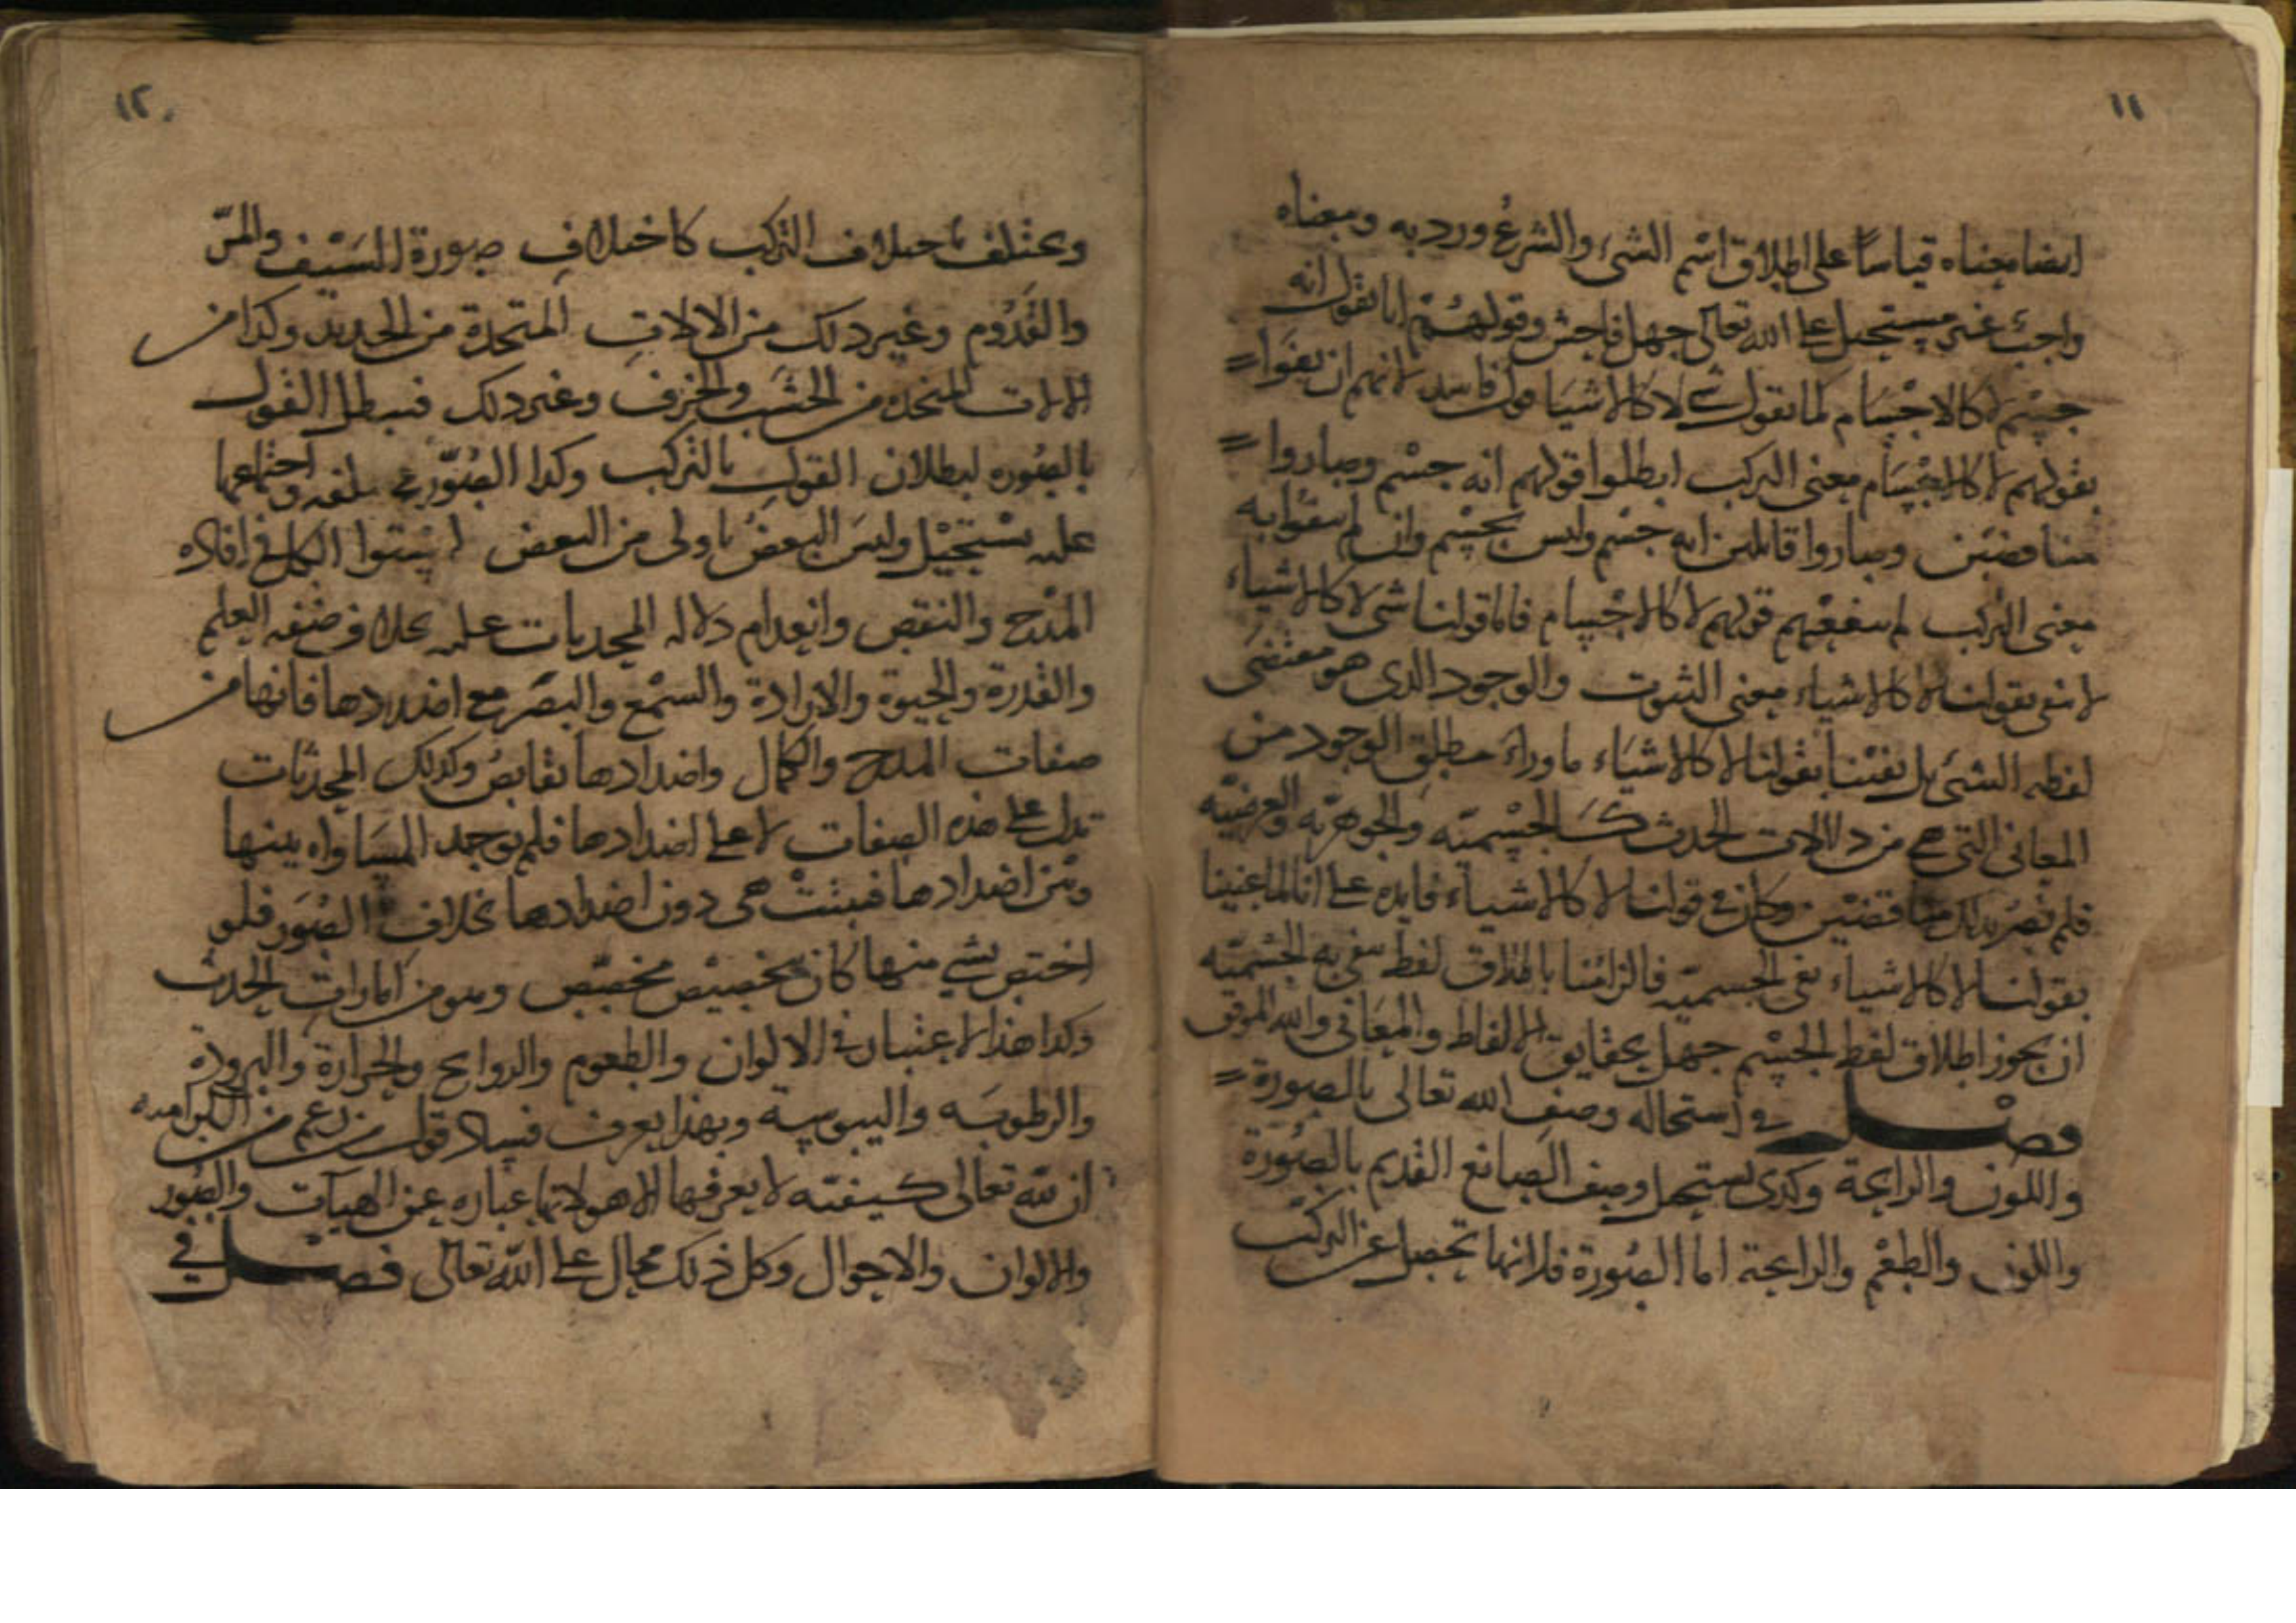 ١١
ايضا معناه قياسًا على اطلاق اسْم الشئ والشرعُ ورد به ومعناه
واجبٌ غير مستحيل على الله تعالى جهل فاحش وقولهُمْ انا نقول انه
جسْم لا كالاجْسَام كما نقول شئ لا كالاشياء قول فاسد لانهم ان نفوا
بقولهم لا كالاجْسَام معنى التركب ابطلوا قولهم انه جسْم وصاروا
مناقضين وصاروا قائلين انه جسْم وليس بجسْم وان لم ينفوا به
معنى التركب لم ينفعهم قولهم لا كالاجْسام فاما قولنا شئ لا كالاشياء
لا ننفى بقولنا لا كالاشياء معنى الثبوت والوجود الذى هو مقتضى
لفظه الشئ بل نفيْنا بقولنا لا كالاشيَاء ما وراءَ مطلق الوجود من
المعانى التى هى من دلالات الحدث كالجسْميّه والجوهريّه والعرضيّه
فلم نصر بذلك مناقضيْن وكان فى قولنا لا كالاشياء فايده على انا لما عنينا
بقولنا لا كالاشياء نفى الجسميّه فالزامُنا باطلاق لفظ ينفى به الجسْميّه
ان يجوز اطلاق لفظ الجسْم جهل بحقايق الالفاظ والمعَانى والله الموفق
فصْل فى استحاله وصف الله تعالى بالصورة
واللون والرايحة وكذى يستحيل وصف الصانع القديم بالصُورة
واللون والطعْم والرايحة اما الصُورة فلانها تحصل عن التركبّ
١٢
وتختلف باختلاف التركب كاختلافِ صورة السَيْف والمرّ
والقَدُوم وغير ذلك من الالاتِ المتخذة من الحديد وكذا من
الالات المتخذه من الخشَب والخزف وغير ذلك فيبطل القول
بالصُوره لبطلان القول بالتركب وكذا الصُوَر مختلفه واجتماعها
عليه يسْتحيْل وليسَ البعضُ باولى من البعض لاستوا الكل فى افاده
المدْح والنقص وانعدام دلاله المحدثات عليه بخلاف صفه العلم
والقدرة والحيوة والارادة والسمْع والبصَر مع اضدادها فانها من
صفات المدح والكمال واضدادها نقايصُ وكذلك المحدثات
تدل على هذه الصفات لا على اضدادها فلم توجد المسَاواه بينها
وبيْن اضدادها فبثتتْ هى دون اضدادها بخلاف الصُوَر فلو
اختص بشئ منها كان بتخصيْص مخصّص وهو من امارات الحدث
وكذا هذا الاعتبار فى الالوان والطعوم والروايح والحرارة والبرودة
والرطوبَه واليبوسة وبهذا يعرف فساد قول من زعم من الكراميه
ان لله تعالى كيفيّه لا يعرفها الا هو لانها عباره عن الهيآت والصُور
والالوان والاحوال وكل ذلك محال على الله تعالى فصْل فى